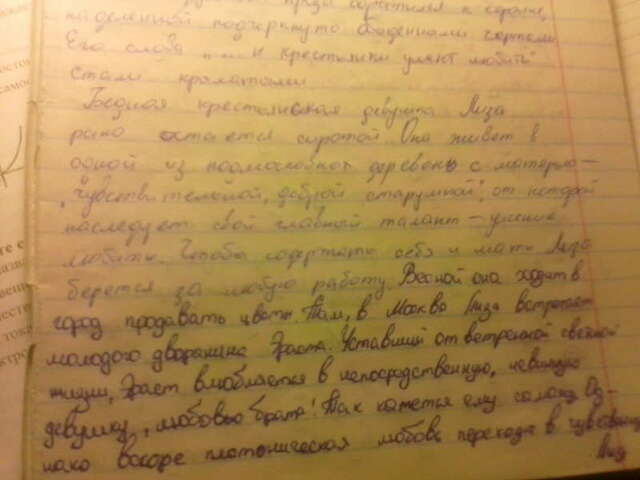 прозы обратился к героине,
наделенной подчеркнуто обыденными чертами
Его слова „... и крестьянки умеют любить"
стали крылатыми
Бедная крестьянская девушка Лиза
рано остается сиротой. Она живет в
одной из подмосковных деревень с матерью –
„чувствительной, доброй старушкой", от которой
наследует свой главный талант – умение
любить. Чтобы содержать себя и мать Лиза
берется за любую работу. Весной она ходит в
город продавать цветы. Там, в Москве Лиза встречает
молодого дворянина Эраста. Уставший от ветренной светской
жизни, Эраст влюбляется в непосредственную, невинную
девушку „любовью брата". Так кажется ему самому. Од-
нако вскоре платоническая любовь переходит в чувственную
Лиз